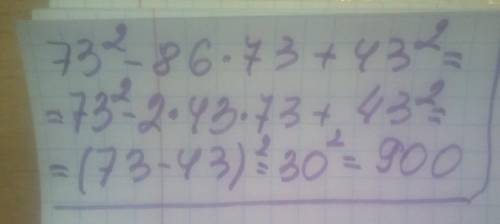 73² - 86 · 73 + 43² =
= 73² - 2 · 43 · 73 + 43² =
= (73 - 43)² = 30² = 900